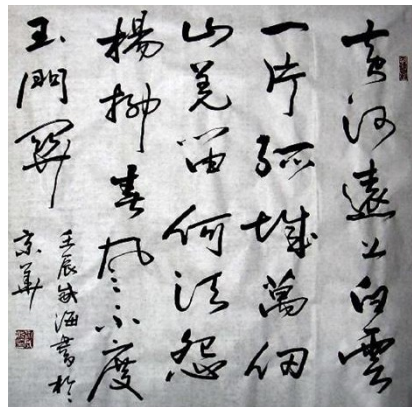 黄河遠上白雲
一片孤城萬仞
山羌笛何須怨
楊柳春風不度
玉門關
壬辰海書於
京華